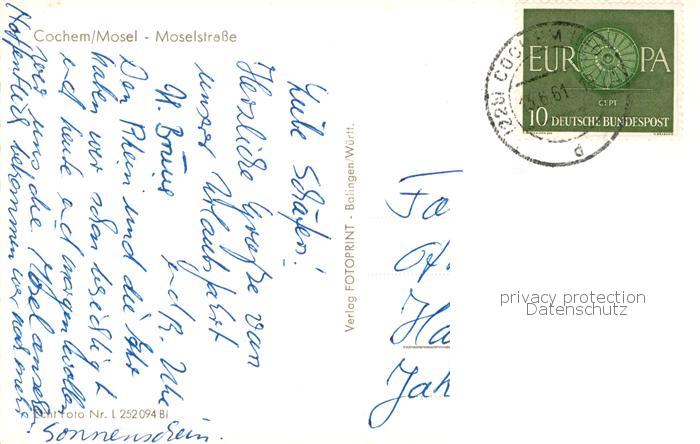 Cochem/Mosel - Moselstraße
EUROPA
CEPT
10 DEUTSCHE BUNDESPOST
(22b) COCHEM
6.61
d
Liebe Schäfers!
Herzliche Grüße von
unserer Urlaubsfahrt
H. Braune und R. Uhe
Den Rhein und die Ahr
haben wir schon besichtigt
und heute und morgen wollen
wir uns die Mosel ansehen.
Hoffentlich bekommen wir noch mehr
Sonnenschein.
Verlag FOTOPRINT - Balingen/Württ.
Echt Foto Nr. L 252094 Bi
Fa
Ha
Jah
privacy protection
Datenschutz